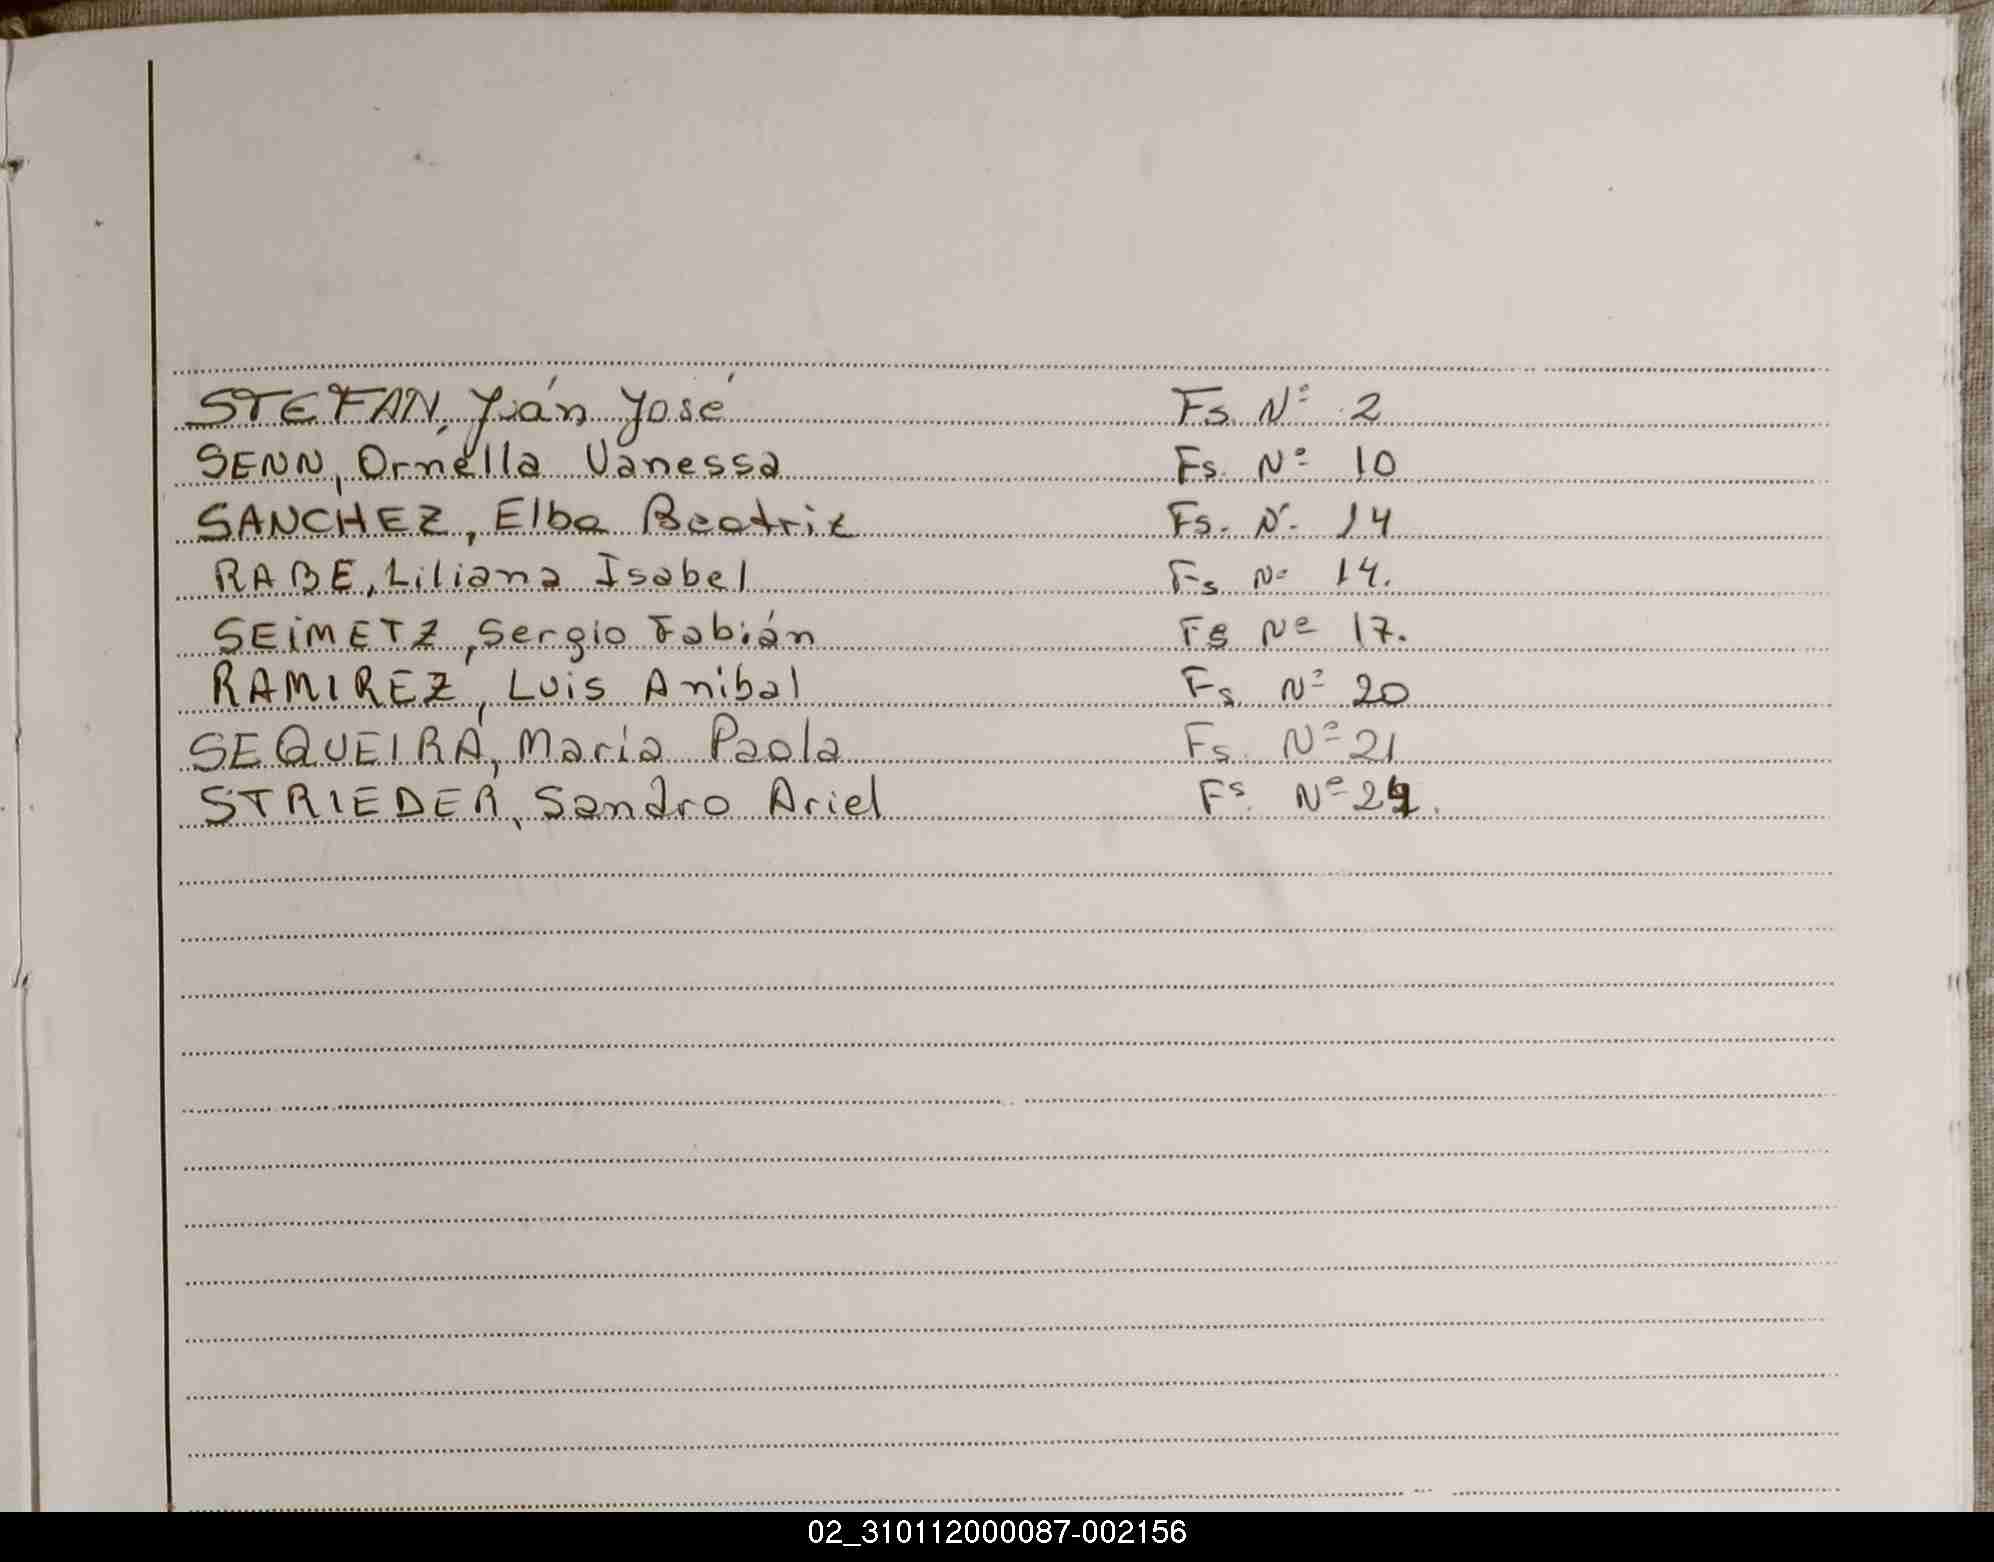 STEFAN, Iván José Fs. Nº 2
SENN, Ornella Vanessa Fs. Nº 10
SANCHEZ, Elba Beatriz Fs. Nº 14
RABE, Liliana Isabel Fs Nº 14.
SEIMETZ, Sergio Fabián Fs Nº 17.
RAMIREZ, Luis Anibal Fs. Nº 20
SEQUEIRA, Maria Paola Fs. Nº 21
STRIEDER, Sandro Ariel Fs. Nº
02_310112000087-002156